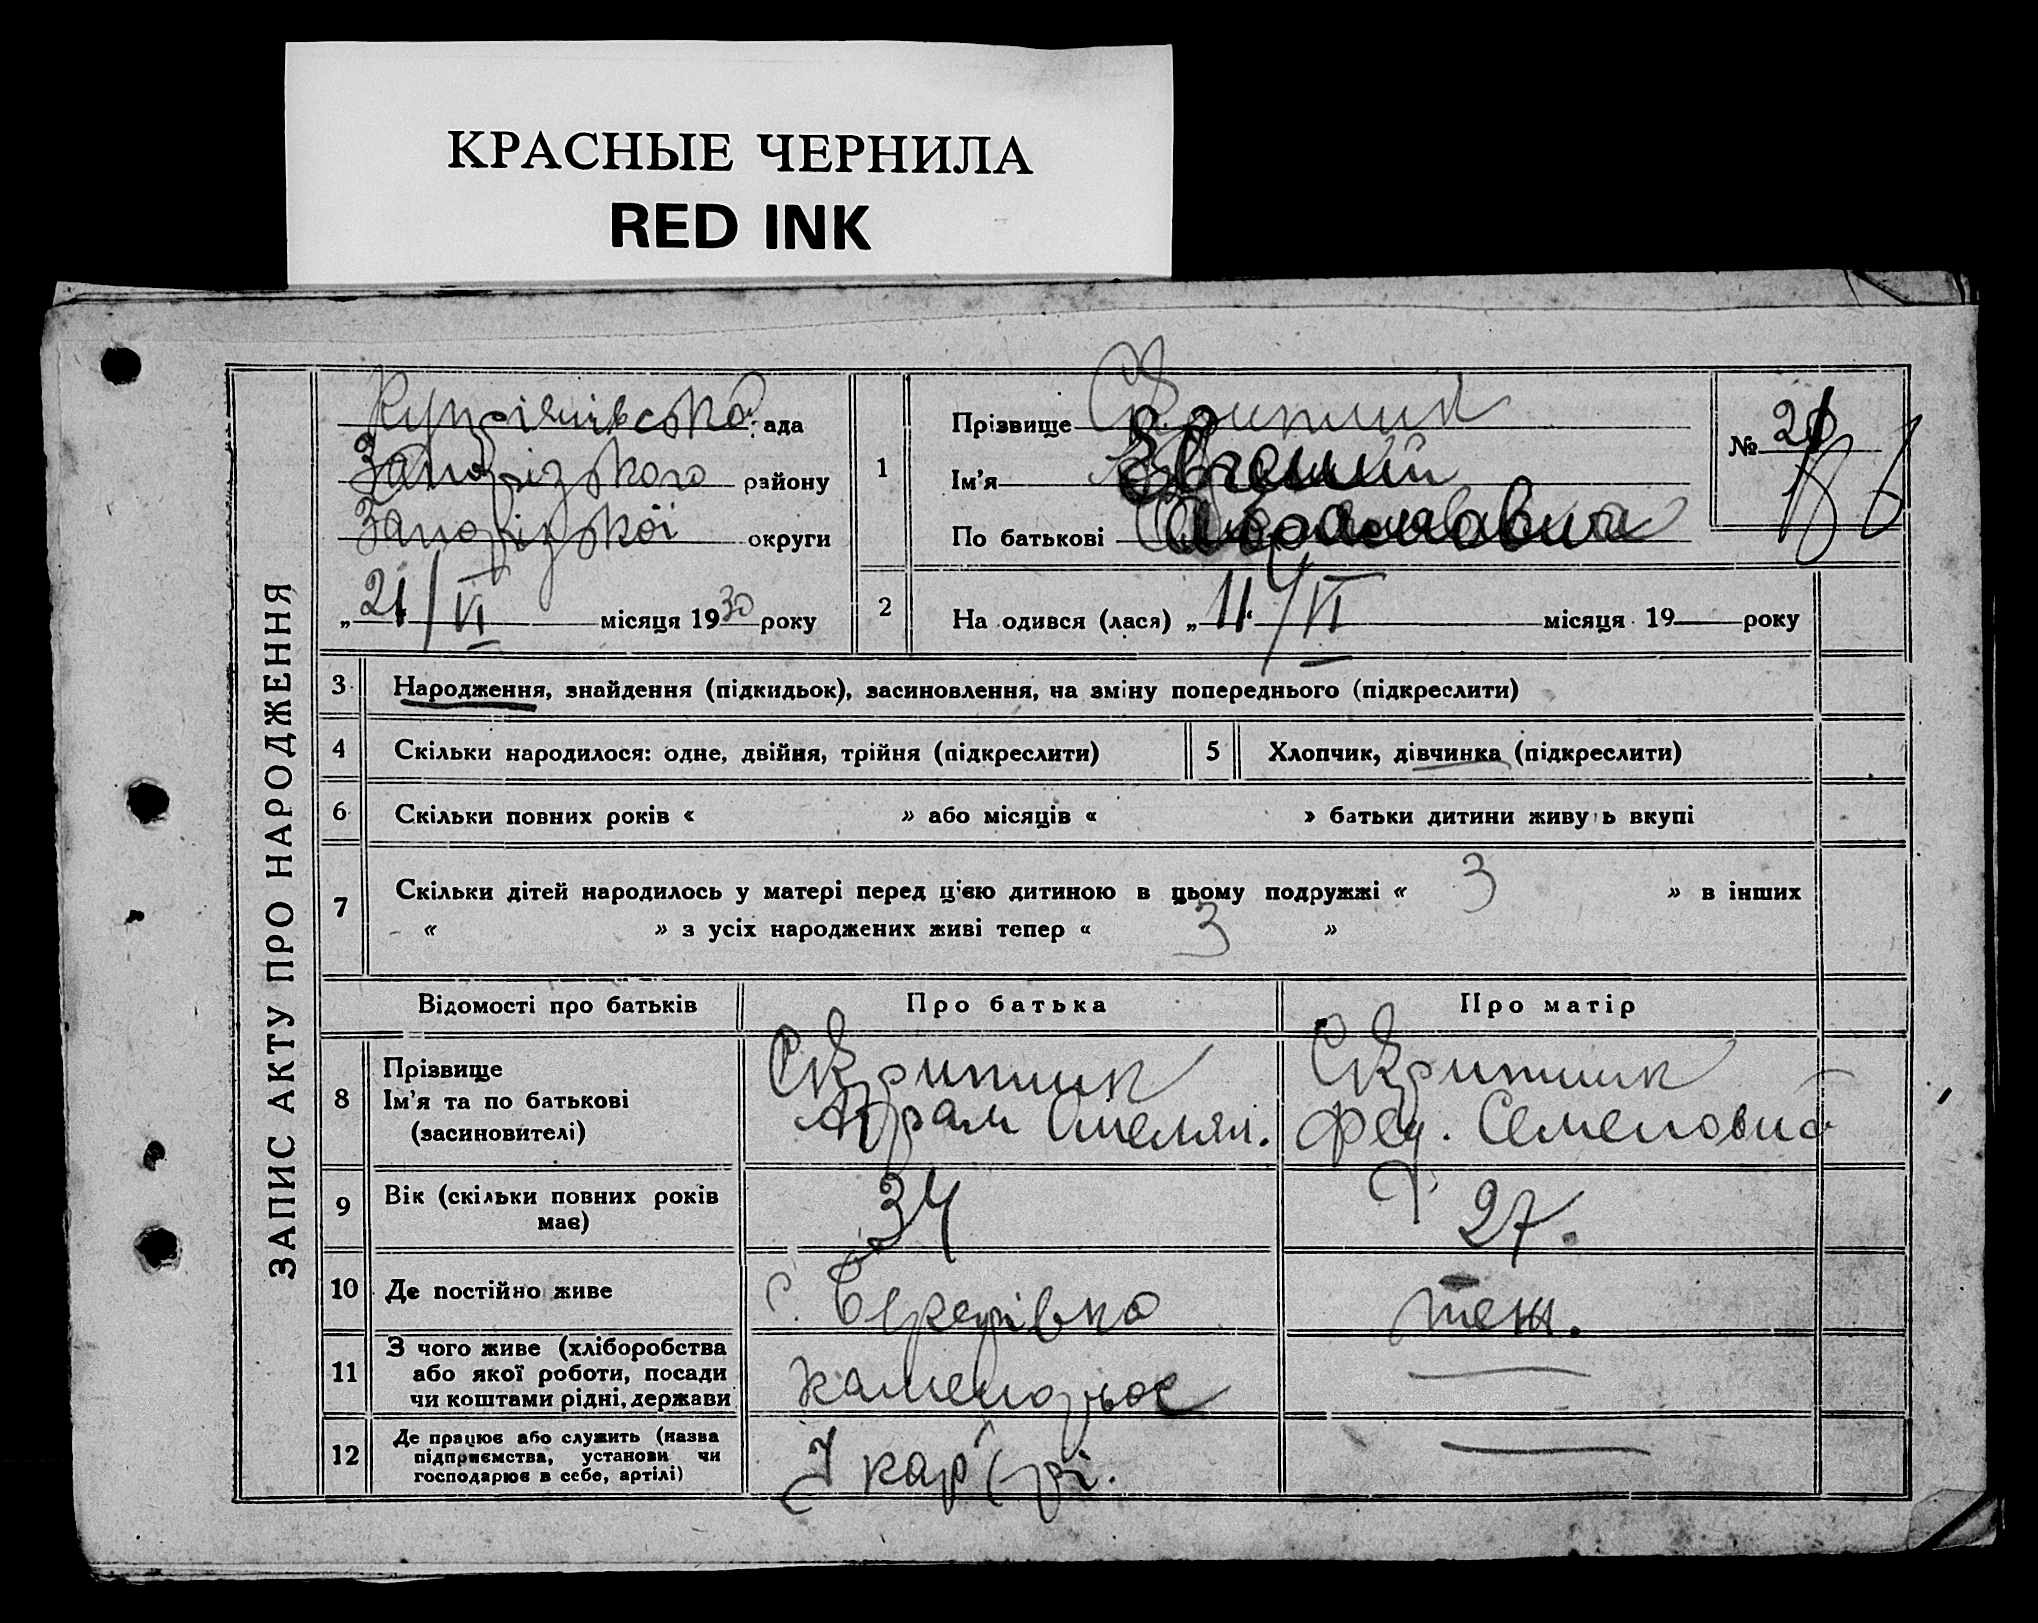 КРАСНЫЕ ЧЕРНИЛА
RED INK
ЗАПИС АКТУ ПРО НАРОДЖЕННЯ
Купріянівська рада
Запорізького району
Запорізької округи
„21/VI місяця 1930 року
1
Прізвище Скрипник
Ім'я Євгеній
По батькові Абрамович
№ 21
2
На одився (лася) „11“/VI місяця 19 року
3 Народження, знайдення (підкидьок), засиновлення, на зміну попереднього (підкреслити)
4 Скільки народилося: одне, двійня, трійня (підкреслити)
5 Хлопчик, дівчинка (підкреслити)
6 Скільки повних років « » або місяців « » батьки дитини живу ь вкупі
7 Скільки дітей народилось у матері перед цією дитиною в цьому подружжі « 3 » в інших
« » з усіх народжених живі тепер « 3 »
Відомості про батьків Про батька Про матір
8 Прізвище Скрипник Скрипник
Ім'я та по батькові Абрам Омелян. Фед. Семеновна
(засновителі)
9 Вік (скільки повних років 34 27.
має)
10 Де постійно живе с. теж.
11 З чого живе (хліборобства
або якої роботи, посади каменорос
чи коштами рідні, держави
12 Де працює або служить (назва
підприємства, установи чи У кар'єрі.
господарює в себе, артілі)